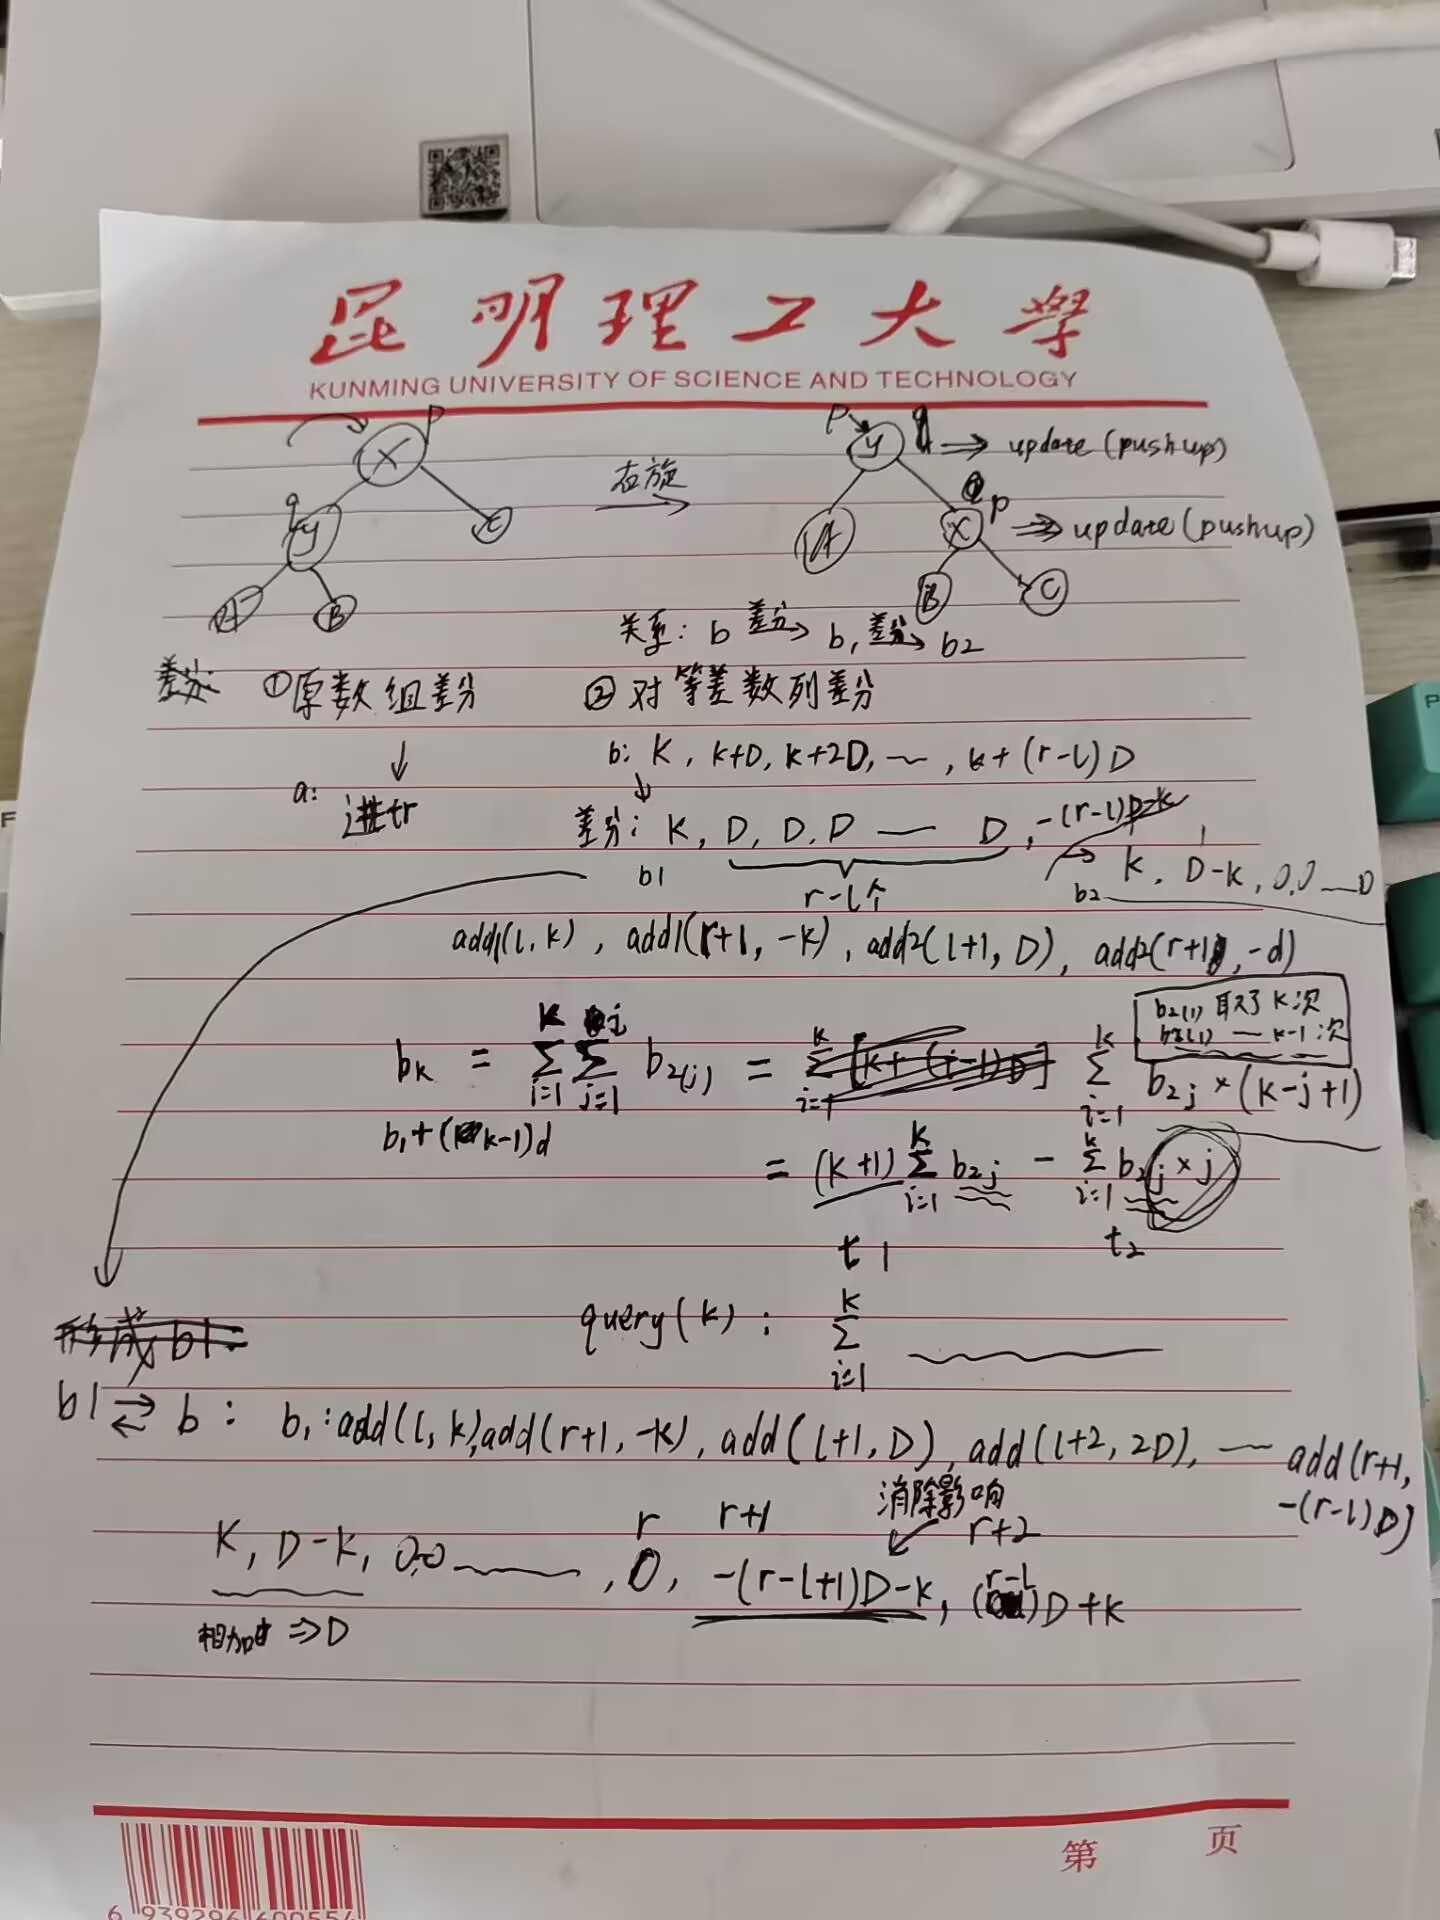 昆明理工大学
KUNMING UNIVERSITY OF SCIENCE AND TECHNOLOGY
p
x
q
y
c
A
B
右旋
p
y
q
⇒ update (pushup)
p
x
⇒ update (pushup)
A
B
C
关系: b 差分→ b1 差分→ b2
差分: ①原数组差分 ②对等差数列差分
b: K, k+D, k+2D, — , k+(r-l)D
a: 进tr
差分: K, D, D, D — D, -(r-l)D-k
b1
r-l个
b2 → K, D-K, 0,0—0
add1(l, k), add1(r+1, -k), add2(l+1, D), add2(r+1, -d)
b2(1) 取了 K次
— k-1次
bk = Σ(i=1→K) Σ(j=1→i) b2(j) = Σ(i=1→k) [k+(i-1)D] Σ(i=1→k) b2j × (k-j+1)
b1+(k-1)d
= (k+1) Σ(i=1→k) b2j - Σ(i=1→k) b2j × j
t1 t2
query(k): Σ(i=1→k)
形成b1:
b1 ⇄ b: b1: add(l, k), add(r+1, -k), add(l+1, D), add(l+2, 2D), — add(r+1, -(r-l)D)
消除影响
r r+1 r+2
K, D-K, 0,0 — , 0, -(r-l+1)D-k, (r-l)D+K
相加时 ⇒ D
第 页
6 939296 600554